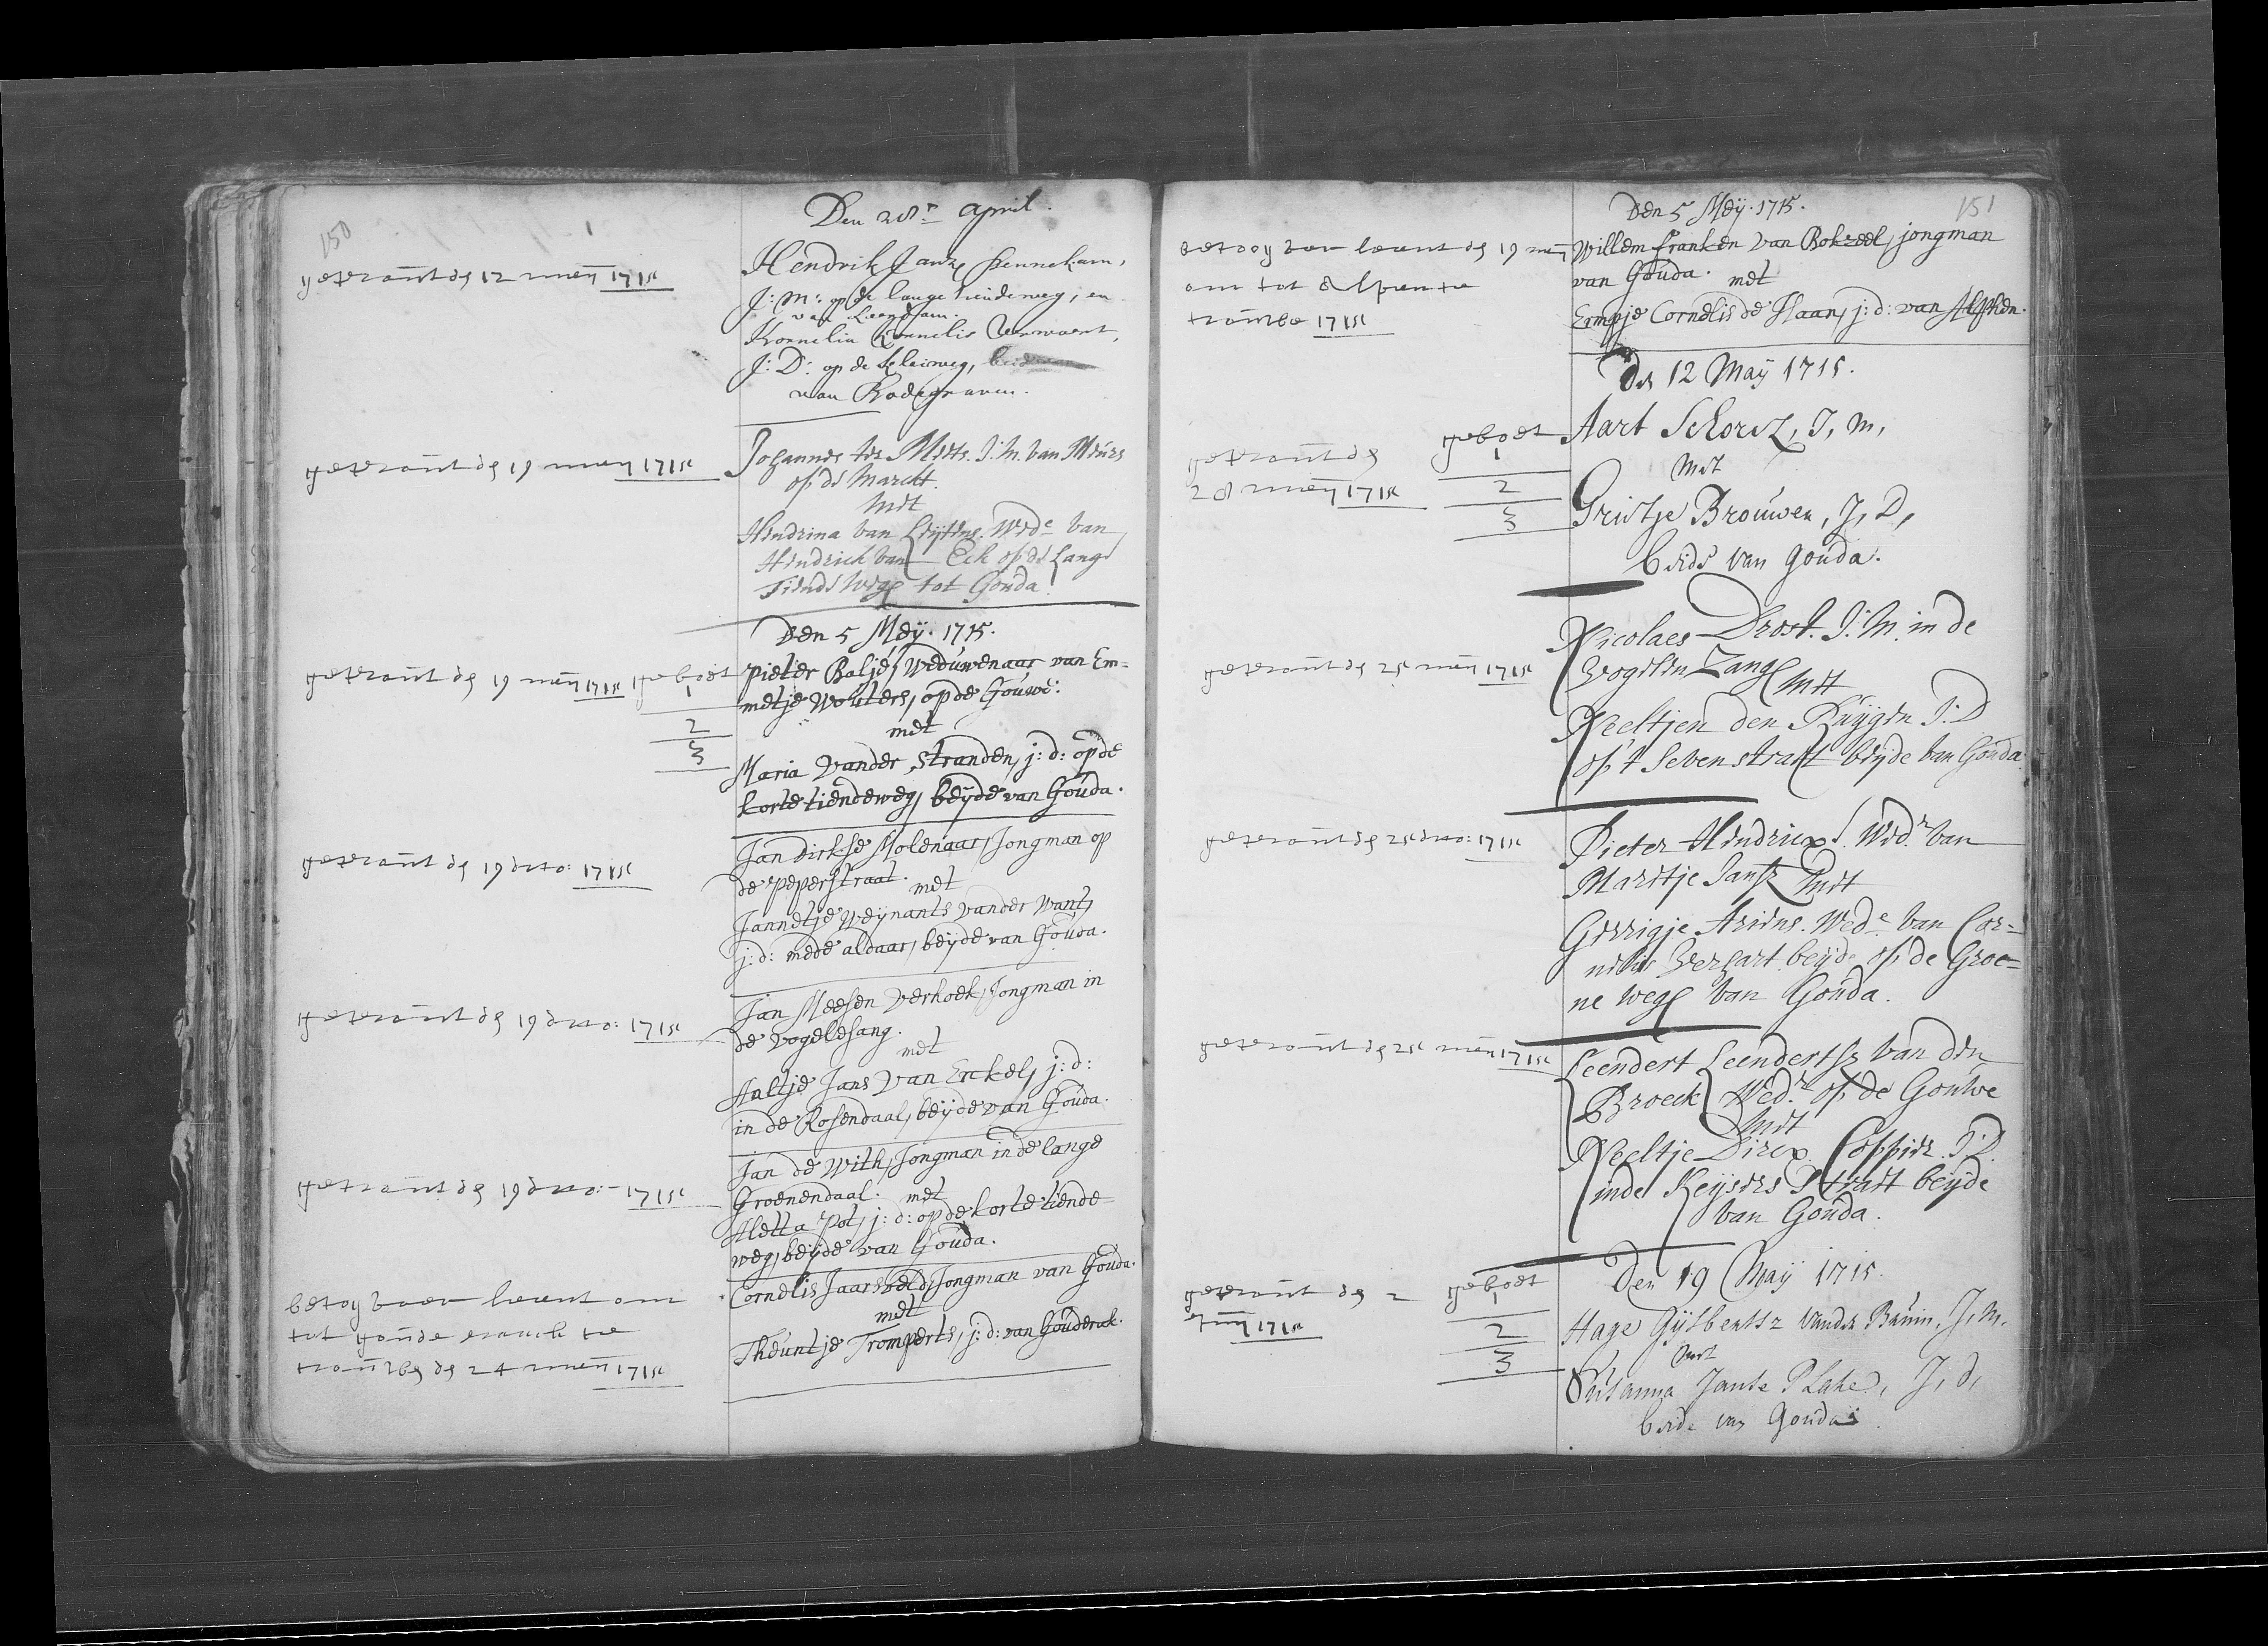 150
Den 28e April.
getrout den 12 meij 1715
Hendrik Janze Pennekam,
J: m: op de lange tiendeweg, en
van Leendam.
Kornelia Kornelis Verwoert,
J: D: op de Kleiweg,
van Bodegraven.
getrout den 19 meij 1715
Johannes ter Meets. J. M. van Meurs
op de Marckt.
met
Hendrina van Leijden. Wede van
Hendrick van Eck op de Lange
Tiendewege tot Gouda
Den 5 Meij. 1715.
getrout den 19 meij 1715 geboden
1
2
3
Pieter Baljé, Weduwenaar van Em=
metje Wouters, op de Gouwe.
met
Maria vander Stranden, j: d: op de
korte tiendeweg, beijde van Gouda.
getrout den 19 dito: 1715
Jan Dirkse Molenaar, Jongman op
de Peperstraat.
met
Jannetje Weijnants vander Want,
j: d: mede aldaar, beijde van Gouda.
getrout den 19 dito: 1715
Jan Meesen Verhoek, Jongman in
de Vogelesang.
met
Aaltje Jans van Erckel, j: d:
in de Rosendaal, beijde van Gouda.
getrout den 19 dito: 1715
Jan de With, Jongman in de lange
Groenendaal. met
Aletta Pot, j: d: op de korte tiende=
weg, beijde van Gouda.
betoog van leent om
tot gouderaack te
trouwen den 24 meij 1715
Cornelis Jaarsveld, Jongman van Gouda.
met
Theuntje Tromperts, j: d: van Gouderak.
151
Den 5 Meij. 1715.
betoog van leent den 19 meij
om tot Alphen te
trouwen 1715
Willem Franken van Bokzeel, jongman
van Gouda. met
Ermpje Cornelis de Haan, j: d: van Alphen.
Den 12 Maij 1715.
getrout den
28 meij 1715
geboden
1
2
3
Aart Schorez, J, m,
met
Grietje Brouwer, J, D,
beide van Gouda.
getrout den 25 meij 1715
Nicolaes Drost. J. M. in de
Vogelen Zang met
Neeltjen den Ruijgen J: D
op 't Sevenstraet beijde van Gouda.
getrout den 25 dito: 1715
Pieter Hendricx. Wedr van
Maritje Jans met
Gerrigje Ariens. Wede van Cor=
nelis Verhart beijde op de Groe=
ne wege van Gouda.
getrout den 25 meij 1715
Leendert Leendertsz van den
Broeck Wedr op de Gouwe
met
Neeltje Dircx. Coppier. J. D.
inde Keijsers Straet beijde
van Gouda.
Den 19 Maij 1715.
getrout den 2
Junij 1715
geboden
1
2
3
Hage Gijsbertsz vander Bruin, J, m.
met
Susanna Janse Plake, J, d,
beide van Gouda